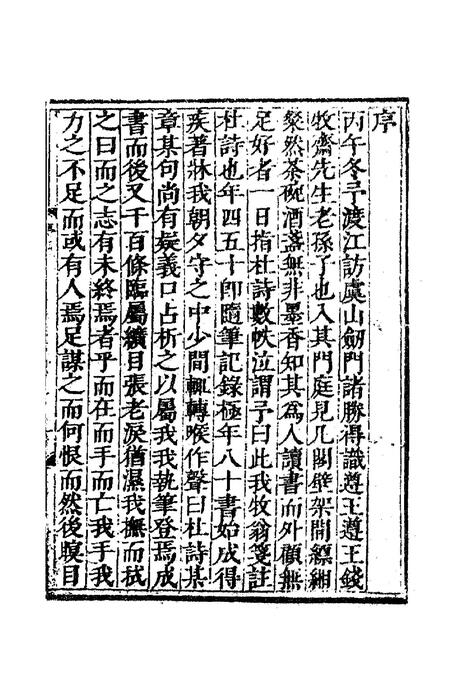 序
丙午冬予渡江訪虞山劒門諸勝得識遵王遵王錢
牧齋先生老孫子也入其門庭見几閣壁架間縹緗
粲然茶碗酒盞無非墨香知其爲人讀書而外顧無
足好者一日指杜詩數帙泣謂予曰此我牧翁箋註
杜詩也年四五十卽隨筆記錄極年八十書始成得
疾著牀我朝夕守之中少間輒轉喉作聲曰杜詩某
章某句尚有疑義口占析之以屬我我執筆登焉成
書而後又千百條臨屬纊目張老淚猶濕我撫而拭
之曰而之志有未終焉者乎而在而手而亡我手我
力之不足而或有人焉足謀之而何恨而然後瞑目